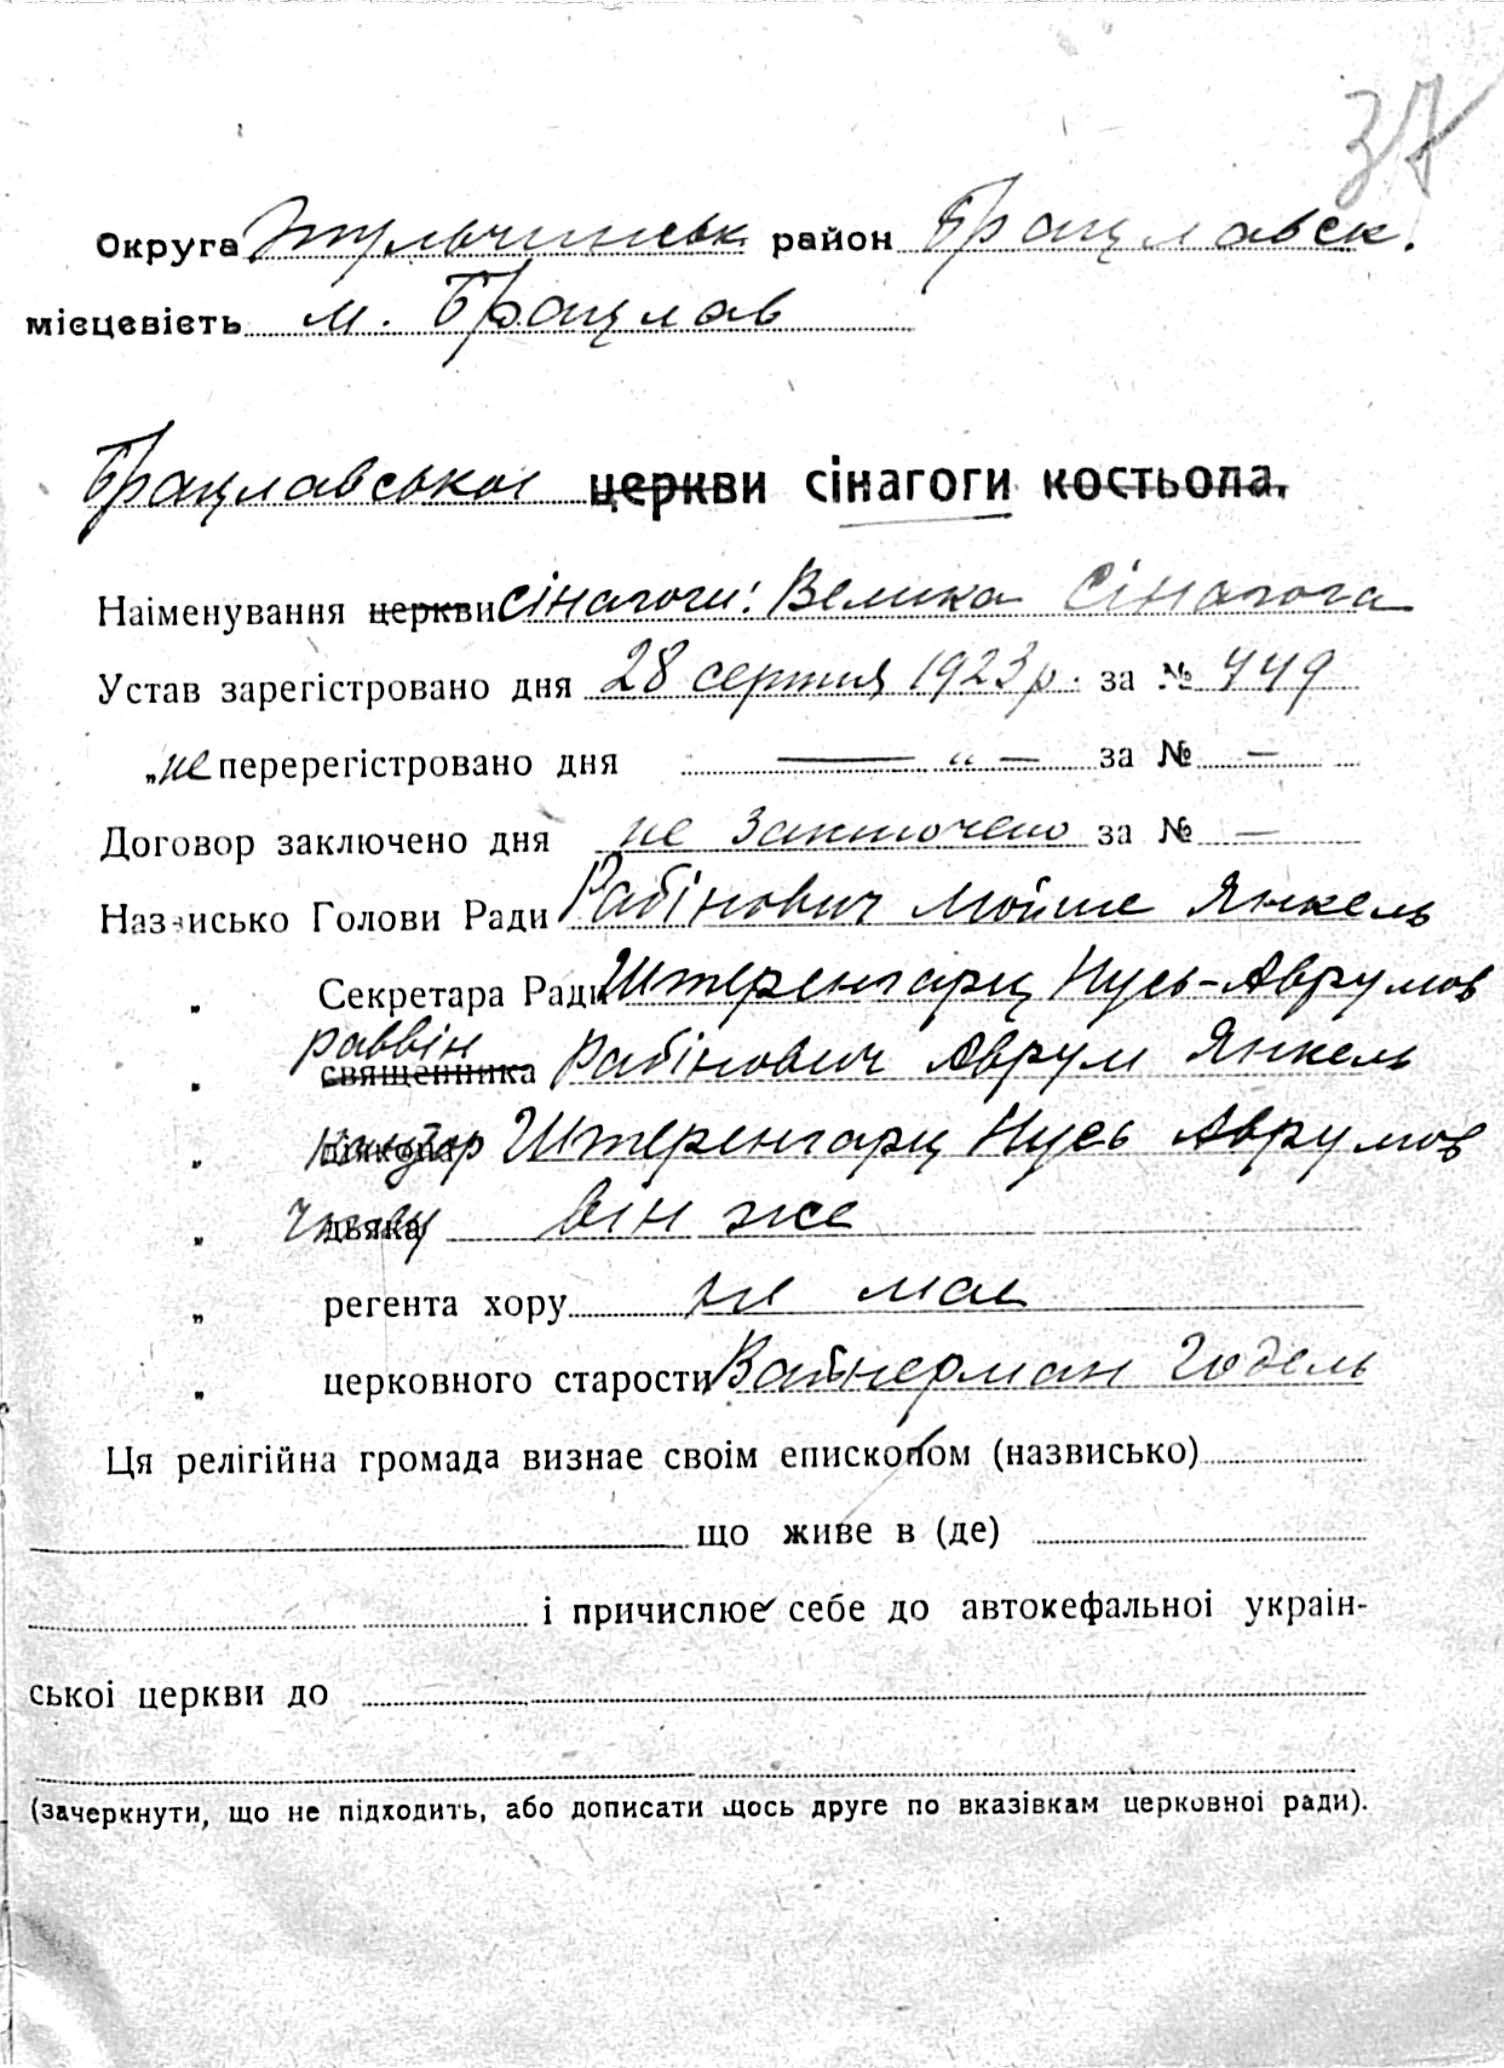 37
Округа Тульчинськ район Брацлавск.
місцевість м. Брацлав
Брацлавськоі церкви сінагоги костьола.
Наіменування церкви сінагоги: Велика Сінагога
Устав зарегістровано дня 28 серпня 1923 р. за № 449
„ не перерегістровано дня — “ — за № —
Договор заключено дня не заключено за № —
Назвисько Голови Ради Рабінович Мойше Янкель
„ Секретара Ради Штеренгарц Нусь-Аврумов
раввін
„ священника Рабінович Аврум Янкель
„ Штеренгарц Нусь Аврумов
„ дьяка він же
„ регента хору не має
„ церковного старости Вайнерман Годель
Ця релігійна громада визнае своім епископом (назвисько)
що живе в (де)
і причислює себе до автокефальноі украін-
ськоі церкви до
(зачеркнути, що не підходить, або дописати щось друге по вказівкам церковноі ради).